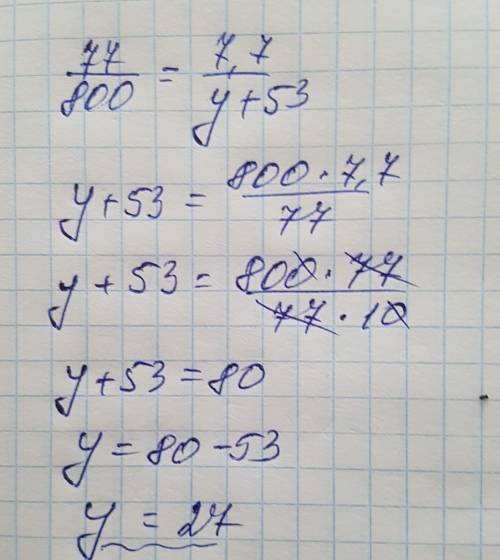 77/800 = 7,7/y+53
y+53 = 800·7,7/77
y+53 = 800·77/77·10
y+53=80
y=80-53
y=27